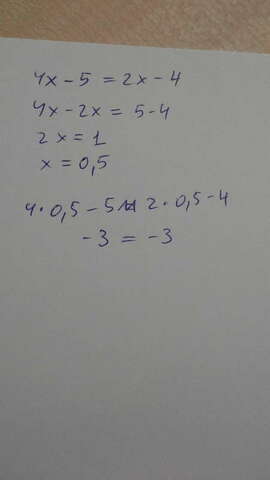 4x - 5 = 2x - 4
4x - 2x = 5 - 4
2x = 1
x = 0,5
4 · 0,5 - 5 и 2 · 0,5 - 4
-3 = -3